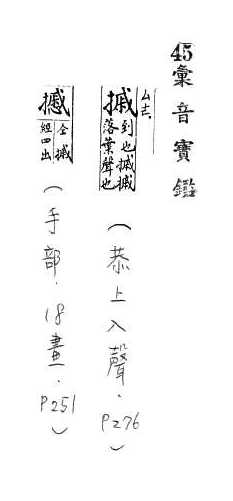 45彙音寶鑑
摵 到也摵摵
落葉聲也
(恭上入聲.P276)
仝摵
四出
(手部.18畫.P251)